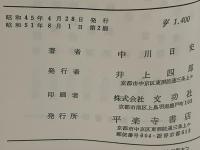 昭和45年4月28日 発行
昭和51年8月1日 第2刷
¥ 1,400
著者 中川日史
発行者 井上四郎
京都市中京区東洞院通三条上ル
印刷者 株式会社 文功社
発行所 平楽寺書店
京都市中京区東洞院通三条上ル